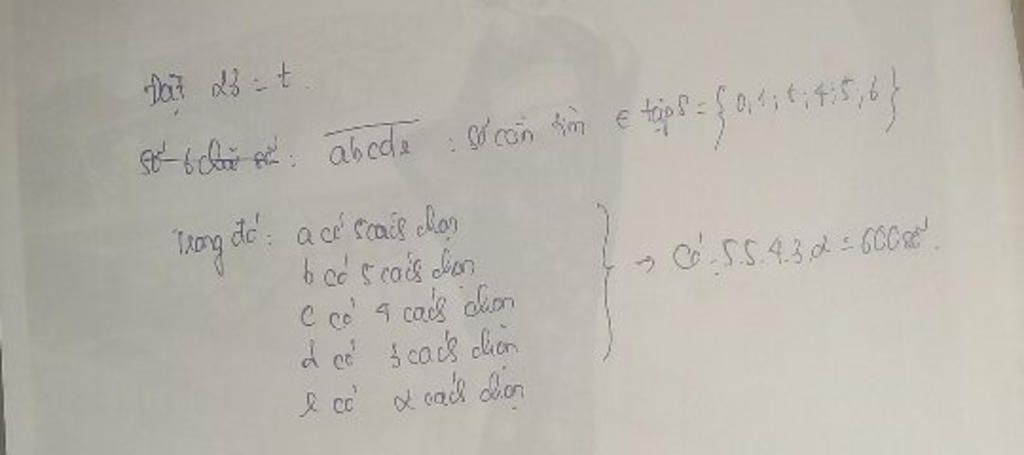 Đặt 23 = t.
số 6 chữ số: abcde : số cần tìm ∈ tập S = {0; 1; t; 4; 5; 6}
Trong đó: a có 5 cách chọn
b có 5 cách chọn
c có 4 cách chọn
d có 3 cách chọn
e có 2 cách chọn
→ Có: 5.5.4.3.2 = 600 số.